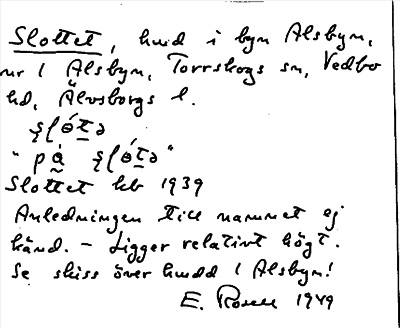 Slottet, hmd i byn Alsbyn,
nr 1 Alsbyn, Torrskogs sn, Vedbo
hd, Älvsborgs l.
ʂɭót̲ə
"på̀ ʂɭót̲ə"
Slottet kb 1939
Anledningen till namnet ej
känd. – Ligger relativt högt.
Se skiss över hmdd 1 Alsbyn!
E. Rosell 1949